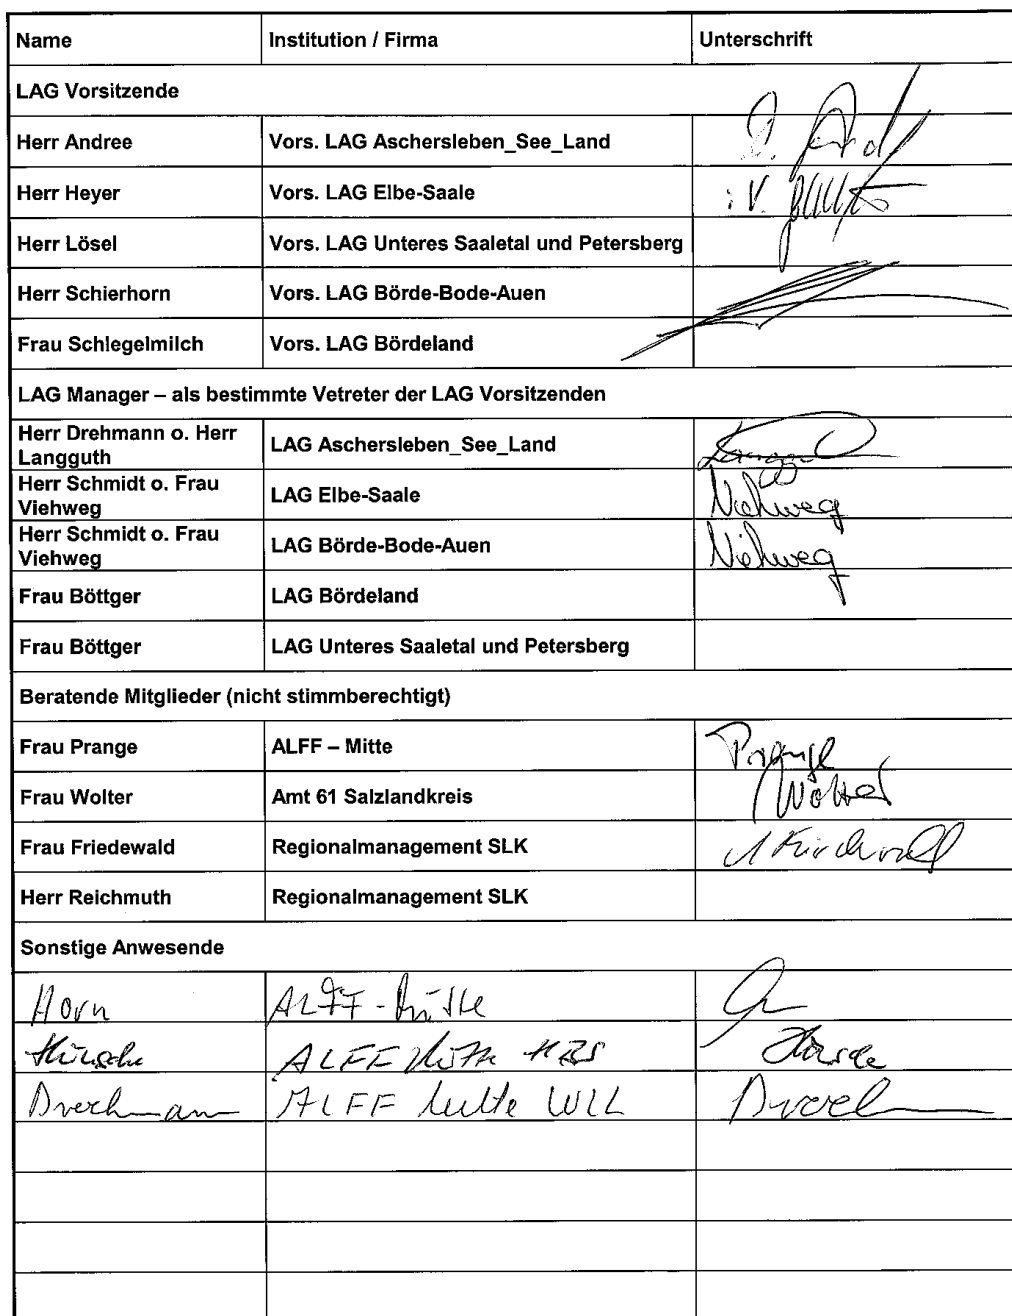 Name Institution / Firma Unterschrift
LAG Vorsitzende
Herr Andree Vors. LAG Aschersleben_See_Land
Herr Heyer Vors. LAG Elbe-Saale i.V.
Herr Lösel Vors. LAG Unteres Saaletal und Petersberg
Herr Schierhorn Vors. LAG Börde-Bode-Auen
Frau Schlegelmilch Vors. LAG Bördeland
LAG Manager – als bestimmte Vetreter der LAG Vorsitzenden
Herr Drehmann o. Herr
Langguth LAG Aschersleben_See_Land
Herr Schmidt o. Frau
Viehweg LAG Elbe-Saale Viehweg
Herr Schmidt o. Frau
Viehweg LAG Börde-Bode-Auen Viehweg
Frau Böttger LAG Bördeland
Frau Böttger LAG Unteres Saaletal und Petersberg
Beratende Mitglieder (nicht stimmberechtigt)
Frau Prange ALFF – Mitte Prange
Frau Wolter Amt 61 Salzlandkreis Wolter
Frau Friedewald Regionalmanagement SLK
Herr Reichmuth Regionalmanagement SLK
Sonstige Anwesende
Horn ALFF-Mitte
ALFF Mitte
ALFF Mitte